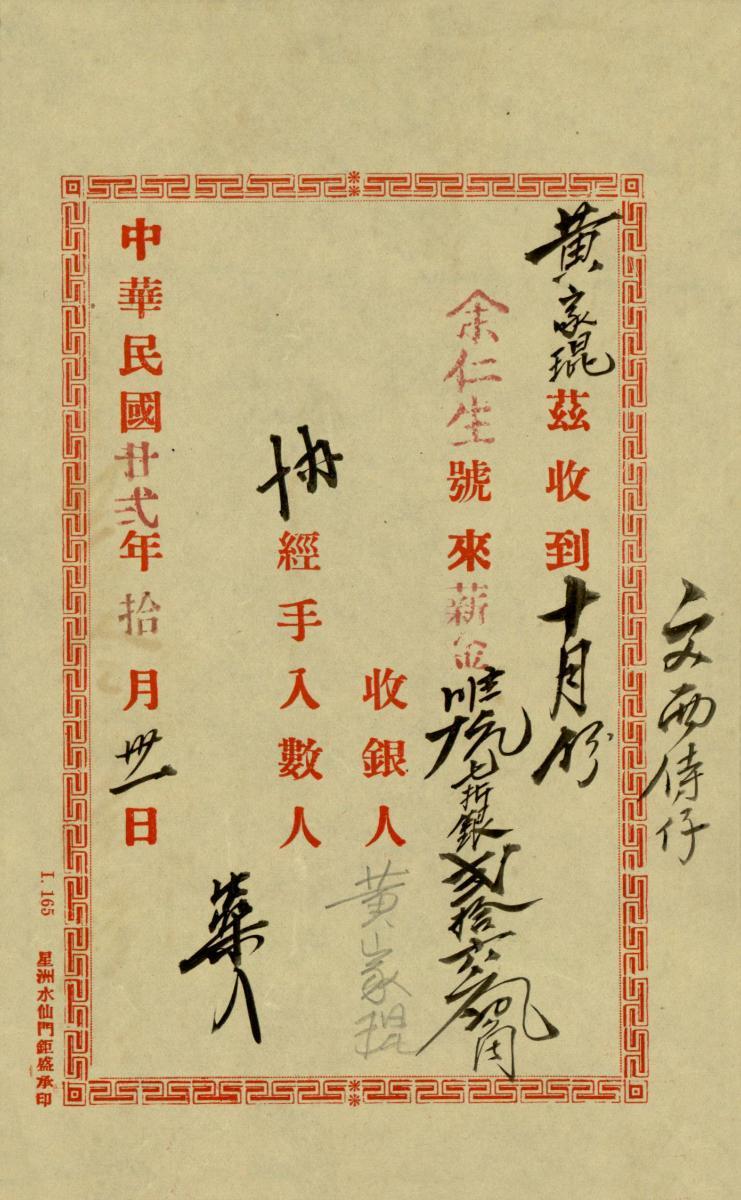 文西侍仔
黃家琨茲收到十月份
余仁生號來薪金七折銀弍拾六元角
收銀人黃家琨
協經手入數人
入
中華民國廿弍年拾月卅一日
I. 165 星洲水仙門鉅盛承印